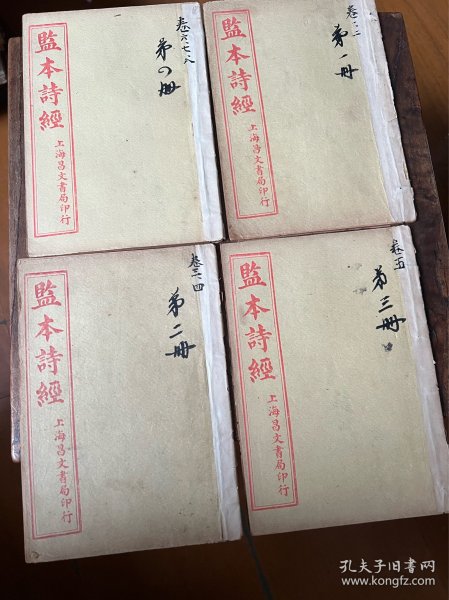 監本詩經
上海昌文書局印行
卷六七八
第四冊
監本詩經
上海昌文書局印行
卷一二
第一冊
監本詩經
上海昌文書局印行
卷三四
第二冊
監本詩經
上海昌文書局印行
卷五
第三冊
孔夫子旧书网
www.kongfz.com